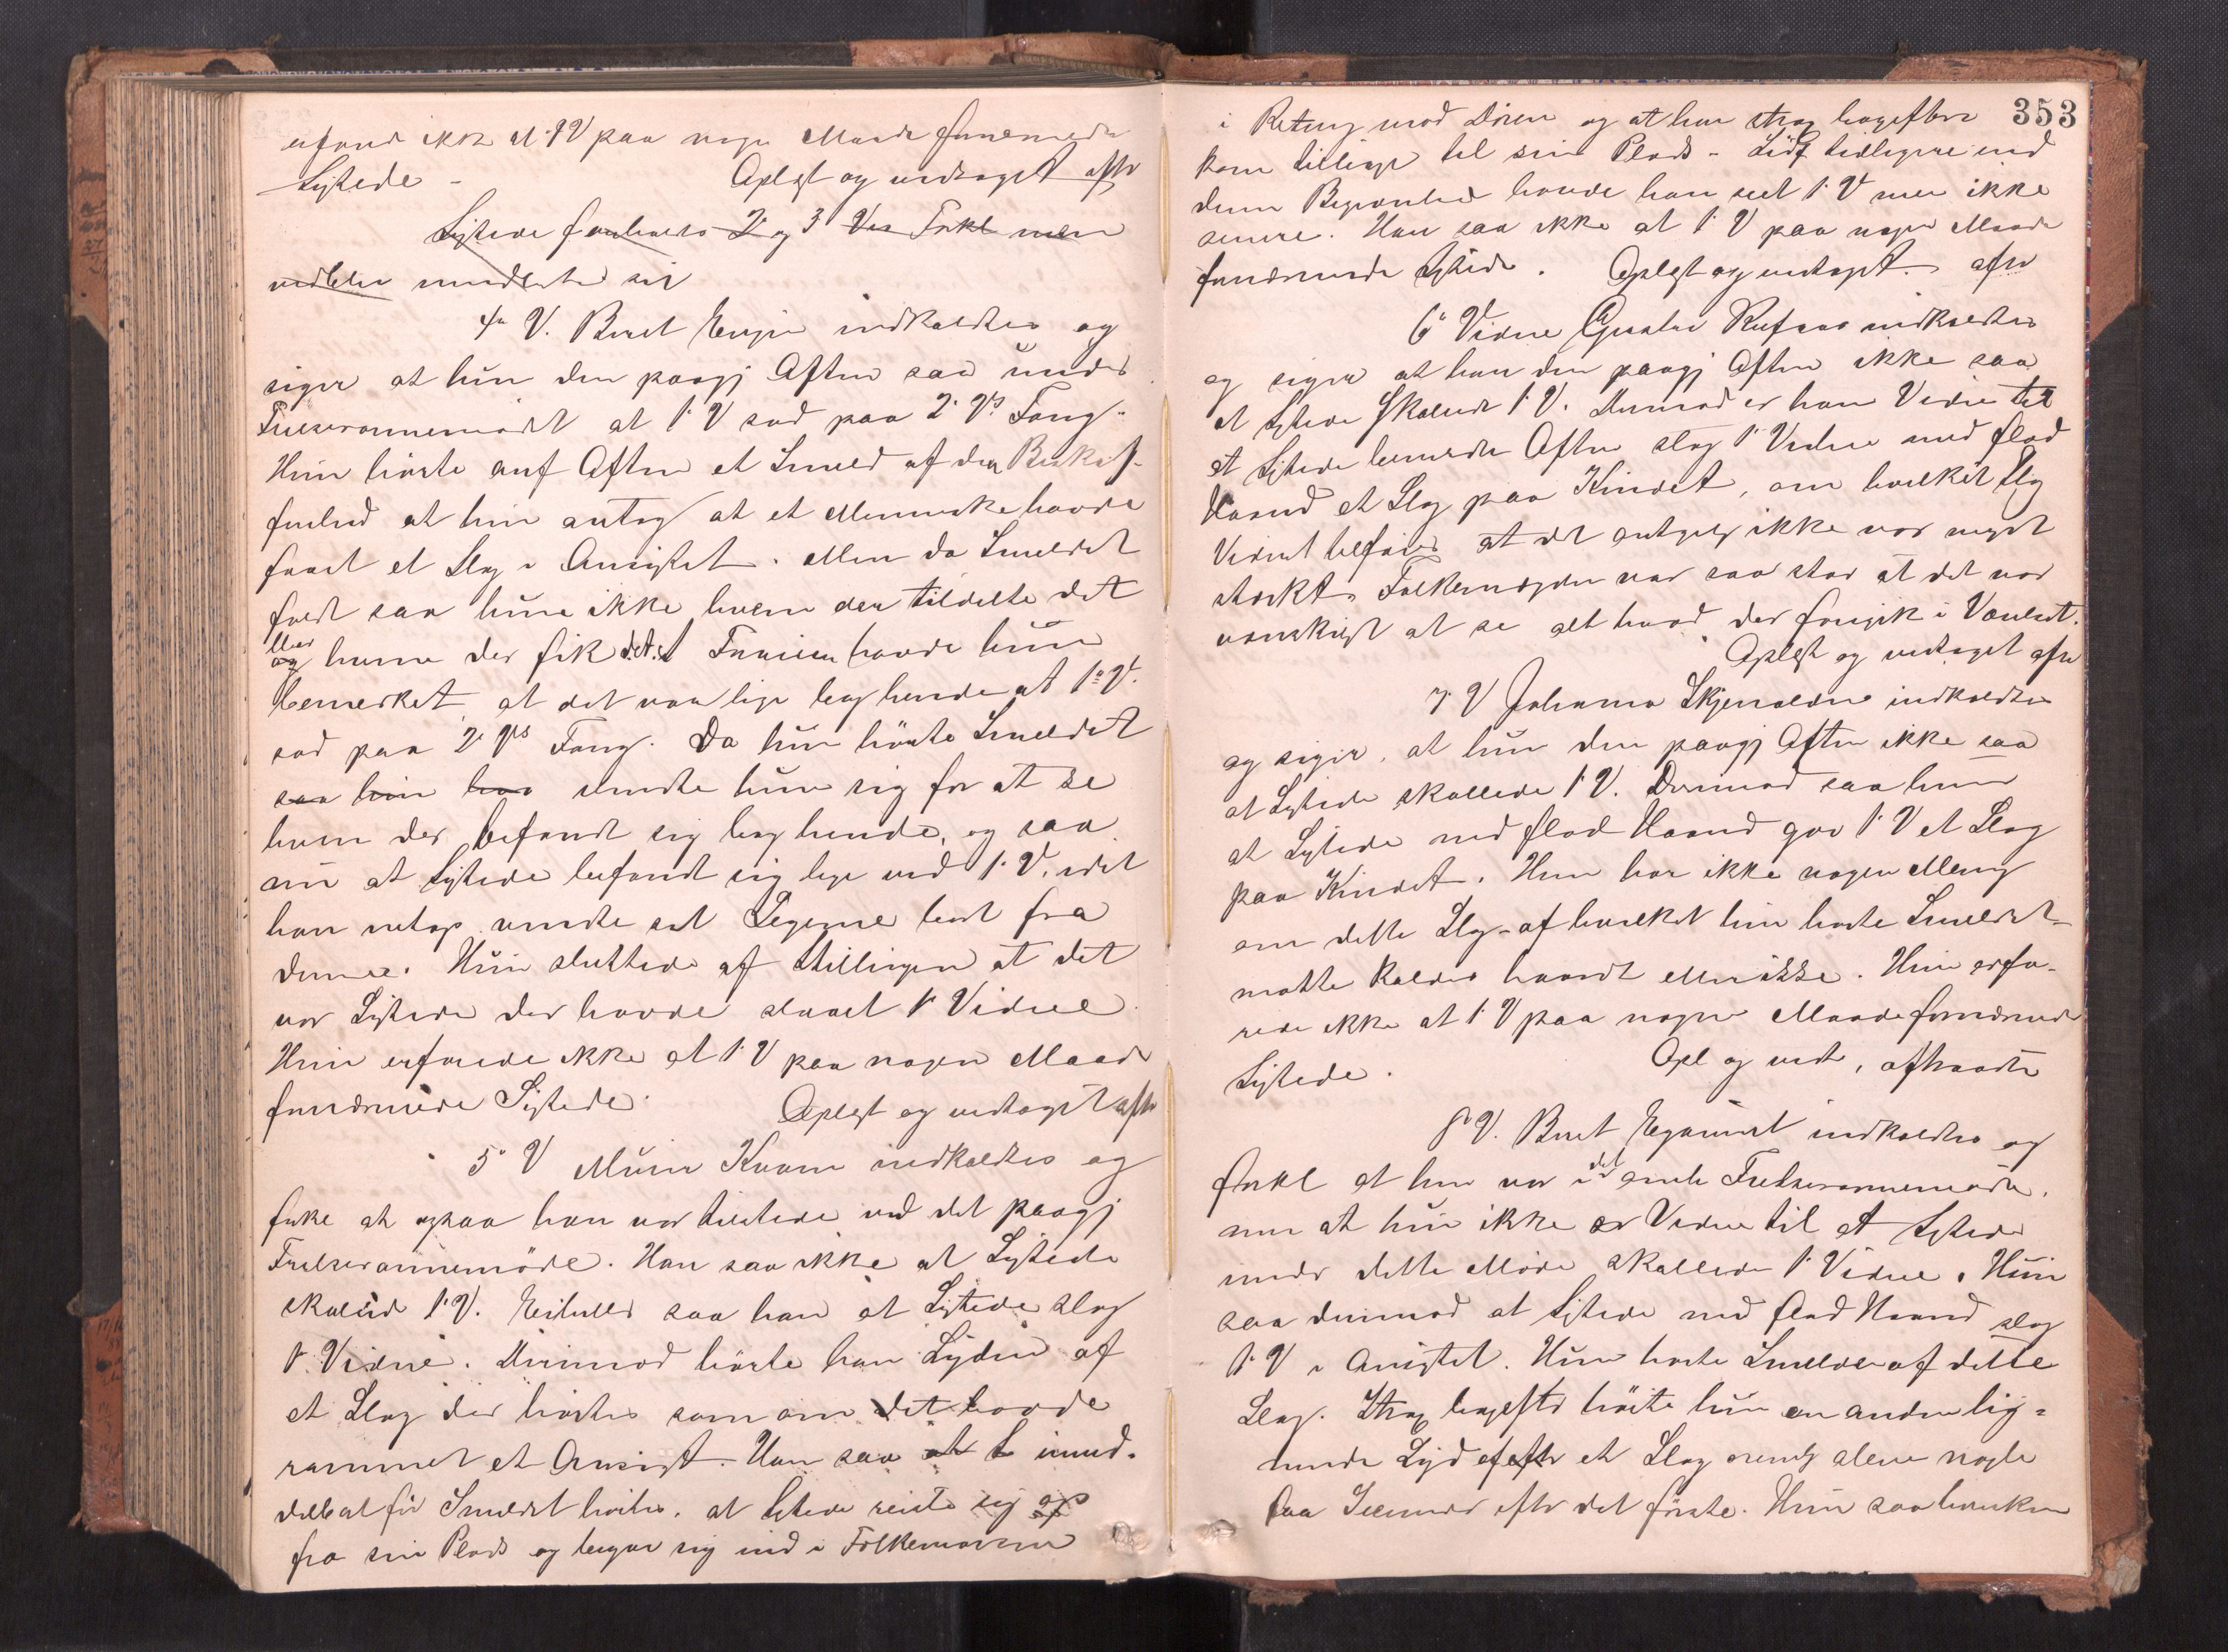 ikke at 1' V paa nogen Maade fornærmede
Sigtede – Oplæst og vedtaget aftr
Sigtede foreholdes 2' og 3' Vs Forkl men
vedblev
4' V. Beret indkaldtes og
siger at hun den paagj Aften saa under
Frelsesarmemødet at 1' V sad paa 2' Vs Fang.
Hun hørte anf Aften et Smeld af den Beskaf-
fenhed at hun antog at et Menneske havde
faaet et Slag i Ansigtet. Men da Smeldet
faldt saa hun ikke hvem der tildelte det
eller
og hvem der fik det. Forinden havde hun
bemerket at det var lige bag hende at 1' V.
sad paa 2' Vs Fang. Da hun hørte Smeldet
saa hun hvo vendte hun sig for at se
hvem der befandt sig bag hende, og saa
nu at Sigtede befandt sig lige ved 1' V. idet
han netop vendte sit Legeme bort fra
denne. Hun sluttede af Stillingen at det
var Sigtede der havde slaaet 1' Vidne.
Hun erfarede ikke at 1' V paa nogen Maade
fornærmede Sigtede. Oplæst og vedtaget aftr
5' V Kvam indkaldtes og
forkl at ogsaa han var tilstede ved det paagj
Frelsesarmemøde. Han saa ikke at Sigtede
skallede 1' V. Eiheller saa han at Sigtede slog
1' Vidne. Derimod hørte han Lyden af
et Slag der hørtes som om det havde
rammet et Ansigt. Han saa at S imid-
delbat før Smeldet hørtes, at Sigtede reiste sig op
fra sin Plads og begav sig ind i Folkemassen
353
i Retning mod Døren og at han strax bagefter
kom tilbage til sin Plads – Lidt tidligere end
denne Begivenhed havde han seet 1' V men ikke
senere. Han saa ikke at 1' V paa nogen Maade
fornærmede Sigtede. Oplæst og vedtaget. aftr
6' Vidne Gustav indkaldtes
og siger at han den paagj Aften ikke saa
at Sigtede skallede 1' V. Derimod er han Vidne til
at Sigtede bemeldte Aften slog 1' Vidne med flad
Haand et Slag paa Kindet, om hvilket Slag
Vidnet tilføier at det antagelig ikke var meget
stærkt. Folkemængden var saa stor at det var
vanskeligt at se alt hvad der foregik i Værelset.
Oplæst og vedtaget aftr
7' V Johanna indkaldtes
og siger, at hun den paagj Aften ikke saa
at Sigtede skallede 1' V. Derimod saa hun
at Sigtede med flad Haand gav 1' V et Slag
paa Kindet. Hun har ikke nogen Mening
om dette Slag – af hvilket hun hørte Smeldet –
maatte kaldes haardt eller ikke. Hun erfa-
rede ikke at 1' V paa nogen Maade fornærmed
Sigtede. Opl og vedt, aftraadte
8' V. Beret indkaldtes og
forkl at hun var i det omh Frelsesarmemøde,
men at hun ikke er Vidne til at Sigtede
under dette Møde skallede 1' Vidne. Hun
saa derimod at Sigtede med flad Haand slog
1' V i Ansigtet. Hun hørte Smeldet af dette
Slag. Strax bagefter hørte hun en anden lig-
nende Lyd efter et Slag alene nogle
faa Secunder efter det første. Hun saa hverken